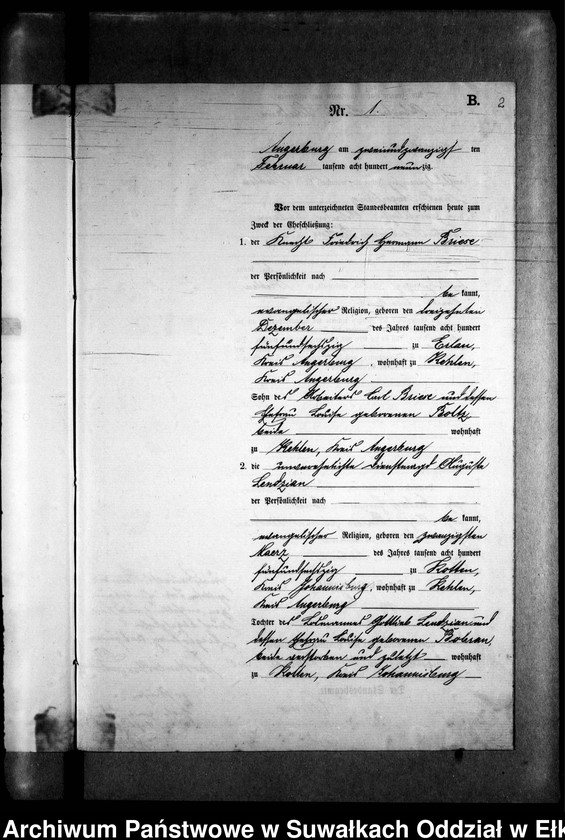 B. 2
Nr. 1.
Angerburg am zweiundzwanzigsten
Februar tausend acht hundert neunzig
Vor dem unterzeichneten Standesbeamten erschienen heute zum
Zweck der Eheschließung:
1. der Knecht Friedrich Hermann Briese
der Persönlichkeit nach
be kannt,
evangelischer Religion, geboren den dreizehnten
Dezember des Jahres tausend acht hundert
fünfundsechszig zu
Kreis Angerburg, wohnhaft zu Kehlen,
Kreis Angerburg
Sohn des Arbeiters Carl Briese und dessen
Ehefrau Louise geborenen Boltz,
beide wohnhaft
zu Kehlen, Kreis Angerburg
2. die unverehelichte Dienstmagd Auguste
Lendzian
der Persönlichkeit nach
be kannt,
evangelischer Religion, geboren den zwanzigsten
Maerz des Jahres tausend acht hundert
fünfundsechszig zu Kotten,
Kreis Johannisburg, wohnhaft zu Kehlen,
Kreis Angerburg
Tochter des Losmannes Gottlieb Lendzian und
dessen Ehefrau Louise geborenen
beide verstorben und zuletzt wohnhaft
zu Kotten, Kreis Johannisburg
Archiwum Państwowe w Suwałkach Oddział w Ełk